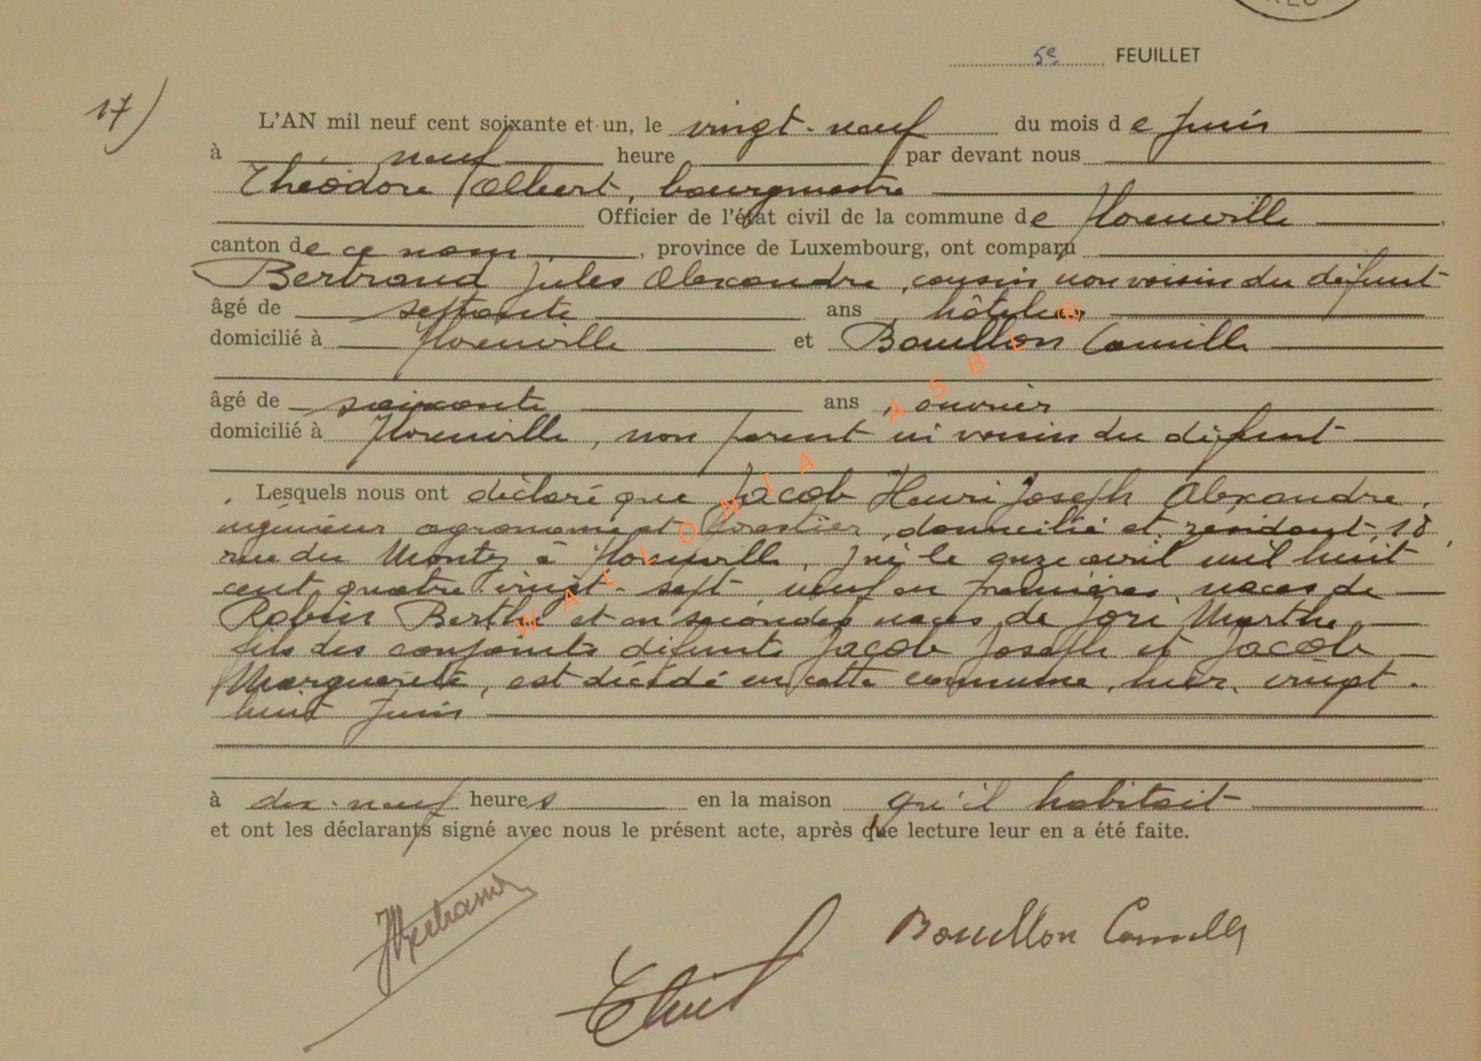 5e FEUILLET
17)
L'AN mil neuf cent soixante et un, le vingt-neuf du mois de Juin
à neuf heure par devant nous
Théodore Albert, bourgmestre
Officier de l'état civil de la commune de Florenville
canton de ce nom, province de Luxembourg, ont comparu
Bertrand Jules Alexandre, cousin non voisin du défunt
âgé de septante ans, hôtelier
domicilié à Florenville et Bouillon Camille
âgé de soixante ans, ouvrier
domicilié à Florenville, non parent ni voisin du défunt
Lesquels nous ont déclaré que Jacob Henri Joseph Alexandre,
ingénieur agronome et forestier, domicilié et résidant, 18,
rue du Monty à Florenville, né le onze avril mil huit
cent quatre vingt-sept, veuf en premières noces de
Robin Berthe et en secondes noces de Marthe,
fils des conjoints défunts Jacob Joseph et Jacob
Marguerite, est décédé en cette commune, hier, vingt-
huit Juin
à dix-neuf heures en la maison qu'il habitait
et ont les déclarants signé avec nous le présent acte, après que lecture leur en a été faite.
JBertrand
Bouillon Camille
WALLONIA ASBL ®